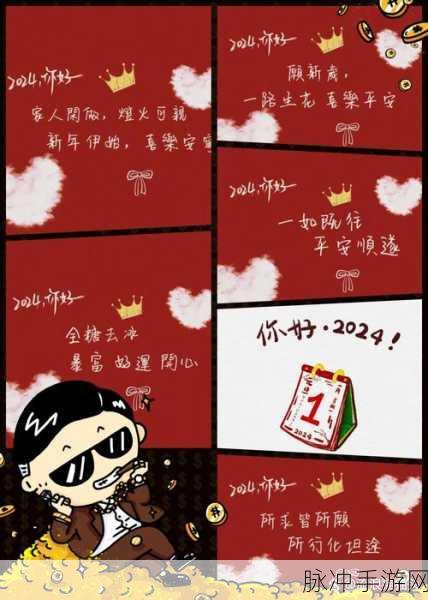 2024,你好
家人閑做，燈火可親
新年伊始，喜樂安寧
2024,你好
願新歲，
一路生花 喜樂平安
2024,你好
一如既往
平安順遂
2024,你好
全糖去冰
暴富 好運 開心
你好·2024！
1
2024
2024,你好
所求皆所願
所行化坦途
脉冲手游网